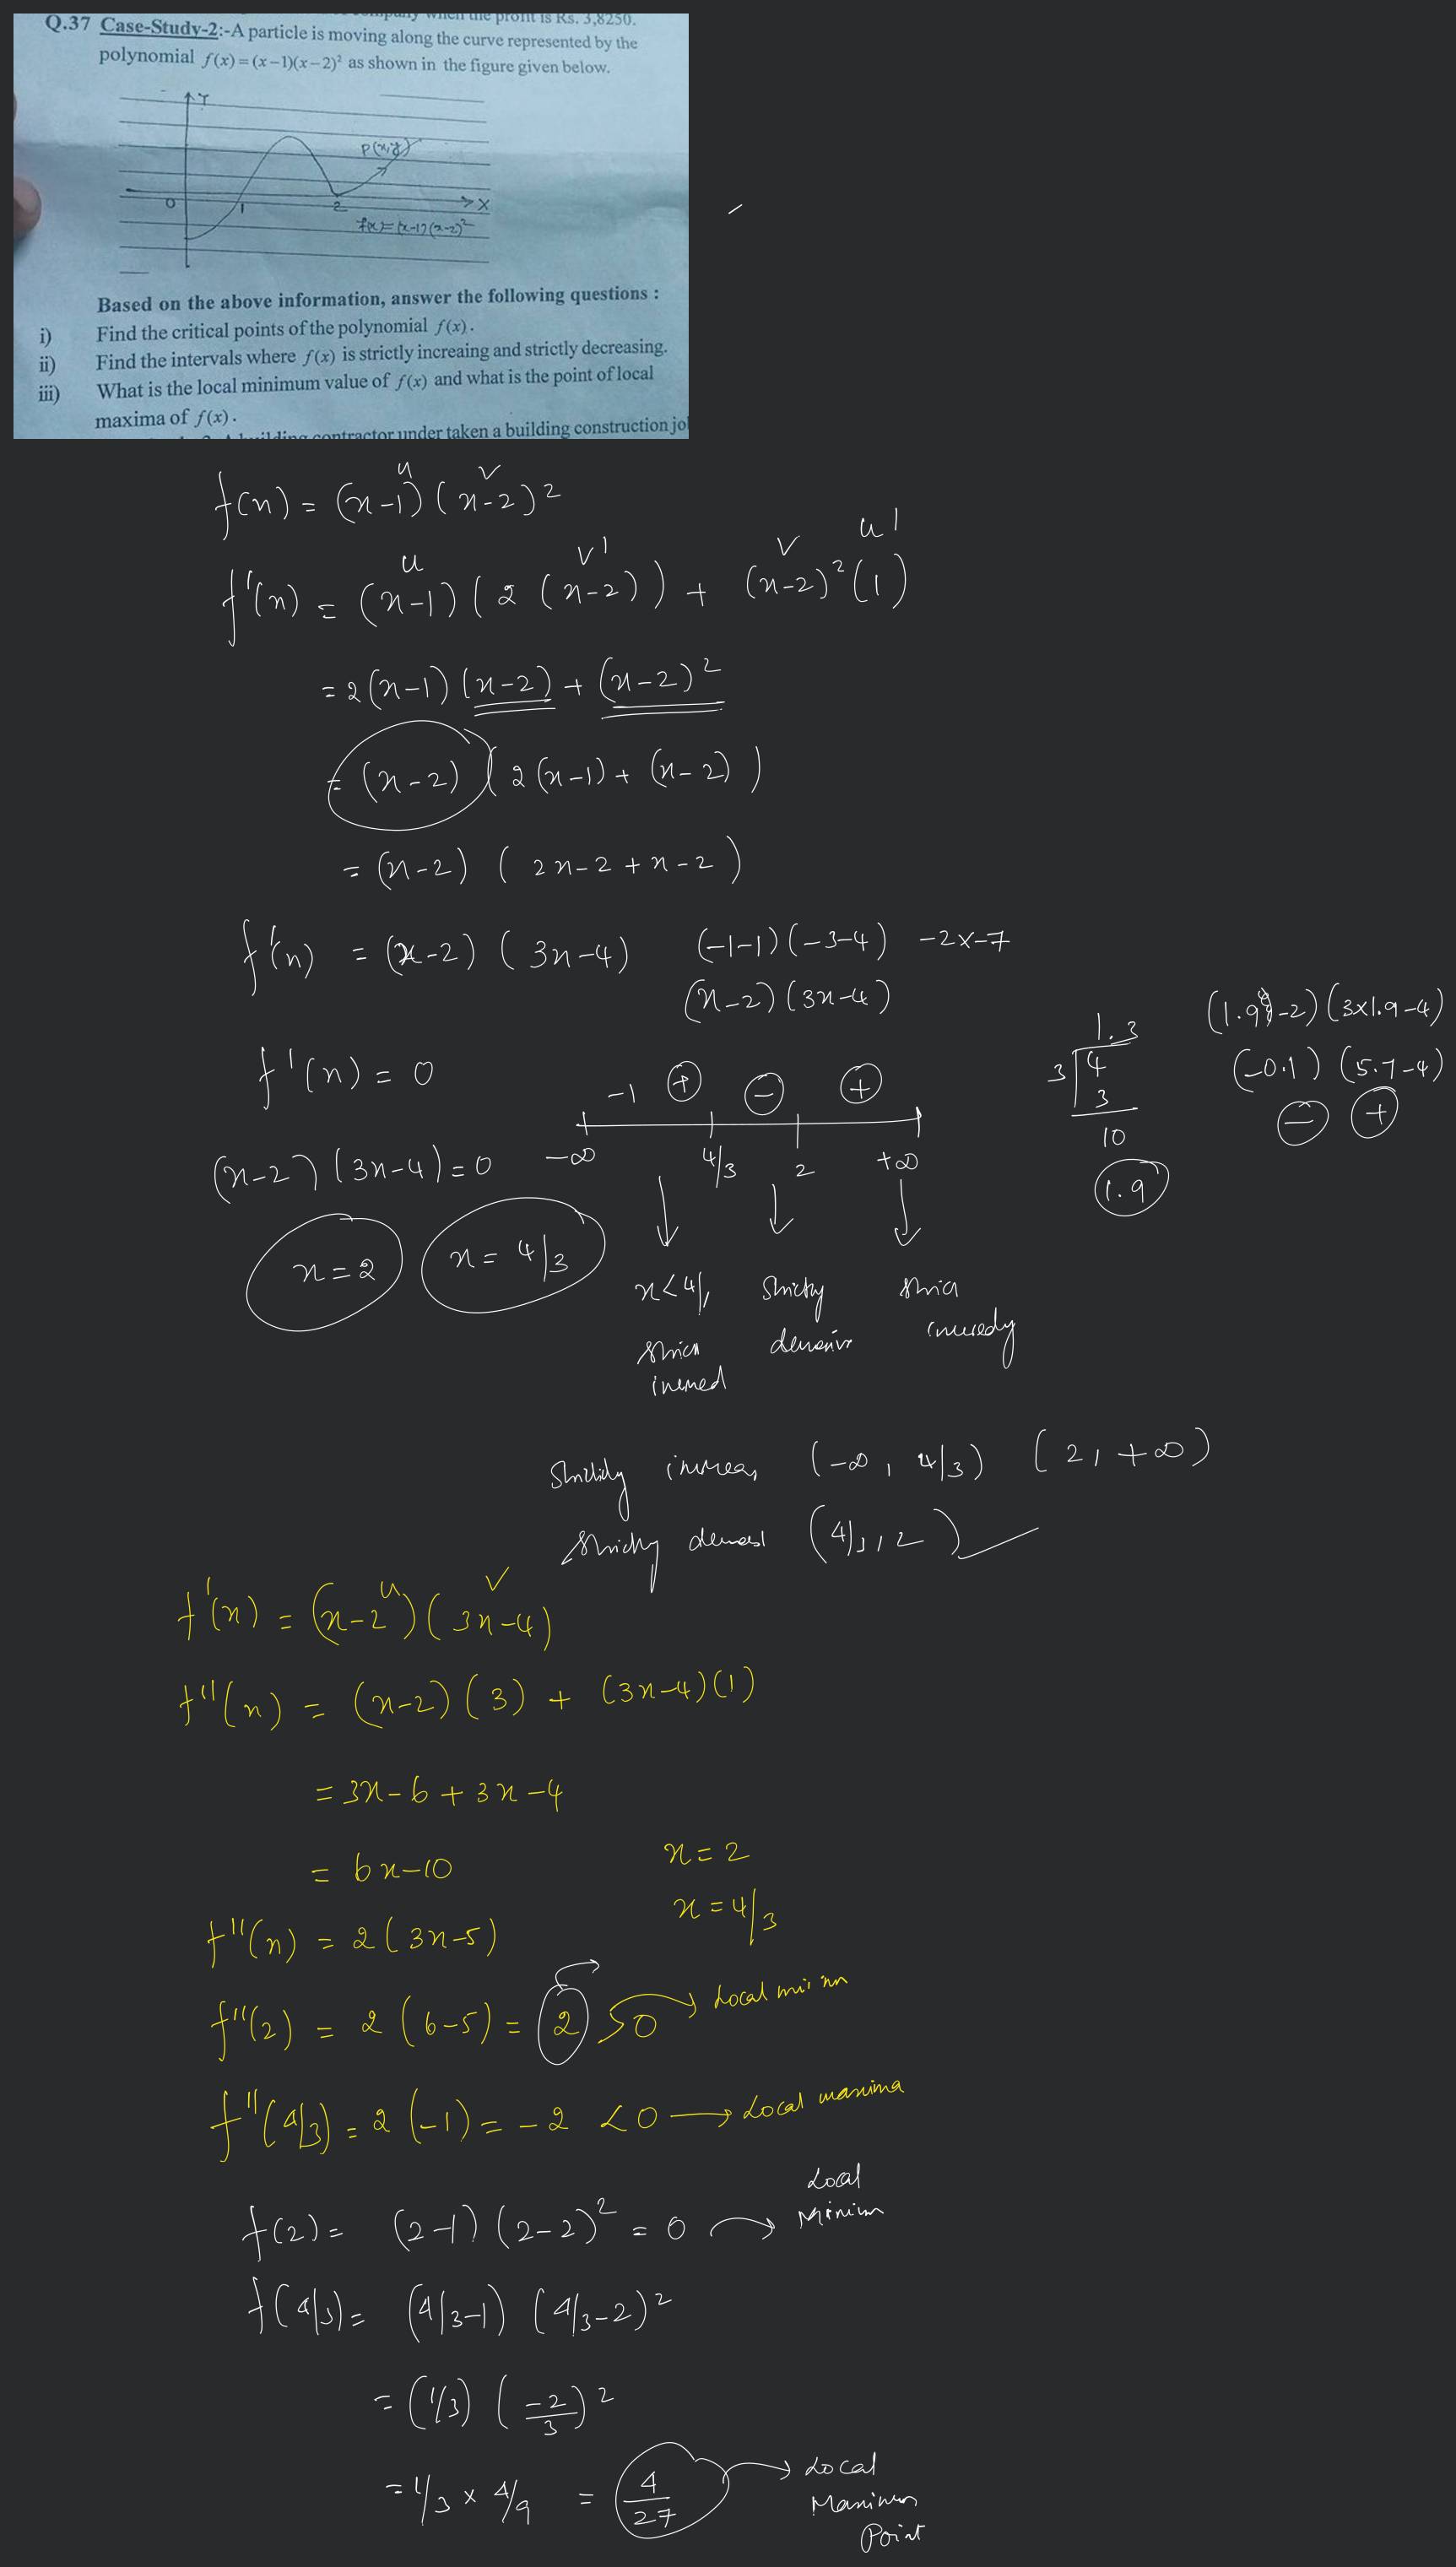 company when the profit is Rs. 3,8250.
Q.37 Case-Study-2:-A particle is moving along the curve represented by the
polynomial f(x)=(x−1)(x−2)² as shown in the figure given below.
Y
P(x,y)
0 1 2 X
f(x)=(x-1)(x-2)²
Based on the above information, answer the following questions :
i) Find the critical points of the polynomial f(x).
ii) Find the intervals where f(x) is strictly increaing and strictly decreasing.
iii) What is the local minimum value of f(x) and what is the point of local
maxima of f(x).
contractor under taken a building construction jo
u v
f(x) = (x-1)(x-2)²
u v' v u'
f'(x) = (x-1)(2(x-2)) + (x-2)²(1)
= 2(x-1)(x-2) + (x-2)²
= (x-2)(2(x-1) + (x-2))
= (x-2) (2x-2+x-2)
f'(x) = (x-2)(3x-4) (-1-1)(-3-4) -2x-7
(x-2)(3x-4)
f'(x) = 0
-1 + - +
-∞ 4/3 2 +∞
1.3
3 4
3
10
1.9
(1.9-2)(3x1.9-4)
(-0.1) (5.7-4)
- +
(x-2)(3x-4)=0
x=2 x=4/3
x<4/
Strictly
Strictly increas, (-∞, 4/3) (2, +∞)
Strictly (4/3, 2)
u v
f'(x) = (x-2)(3x-4)
f''(x) = (x-2)(3) + (3x-4)(1)
= 3x-6+3x-4
= 6x-10
x=2
x=4/3
f''(x) = 2(3x-5)
f''(2) = 2(6-5) = 2 >0 Local
f''(4/3) = 2(-1) = -2 <0 Local maxima
f(2) = (2-1)(2-2)² = 0 Local
Minimum
f(4/3) = (4/3-1)(4/3-2)²
= (1/3)(-2/3)²
= 1/3 x 4/9 = 4/27 Local
Maximum
Point